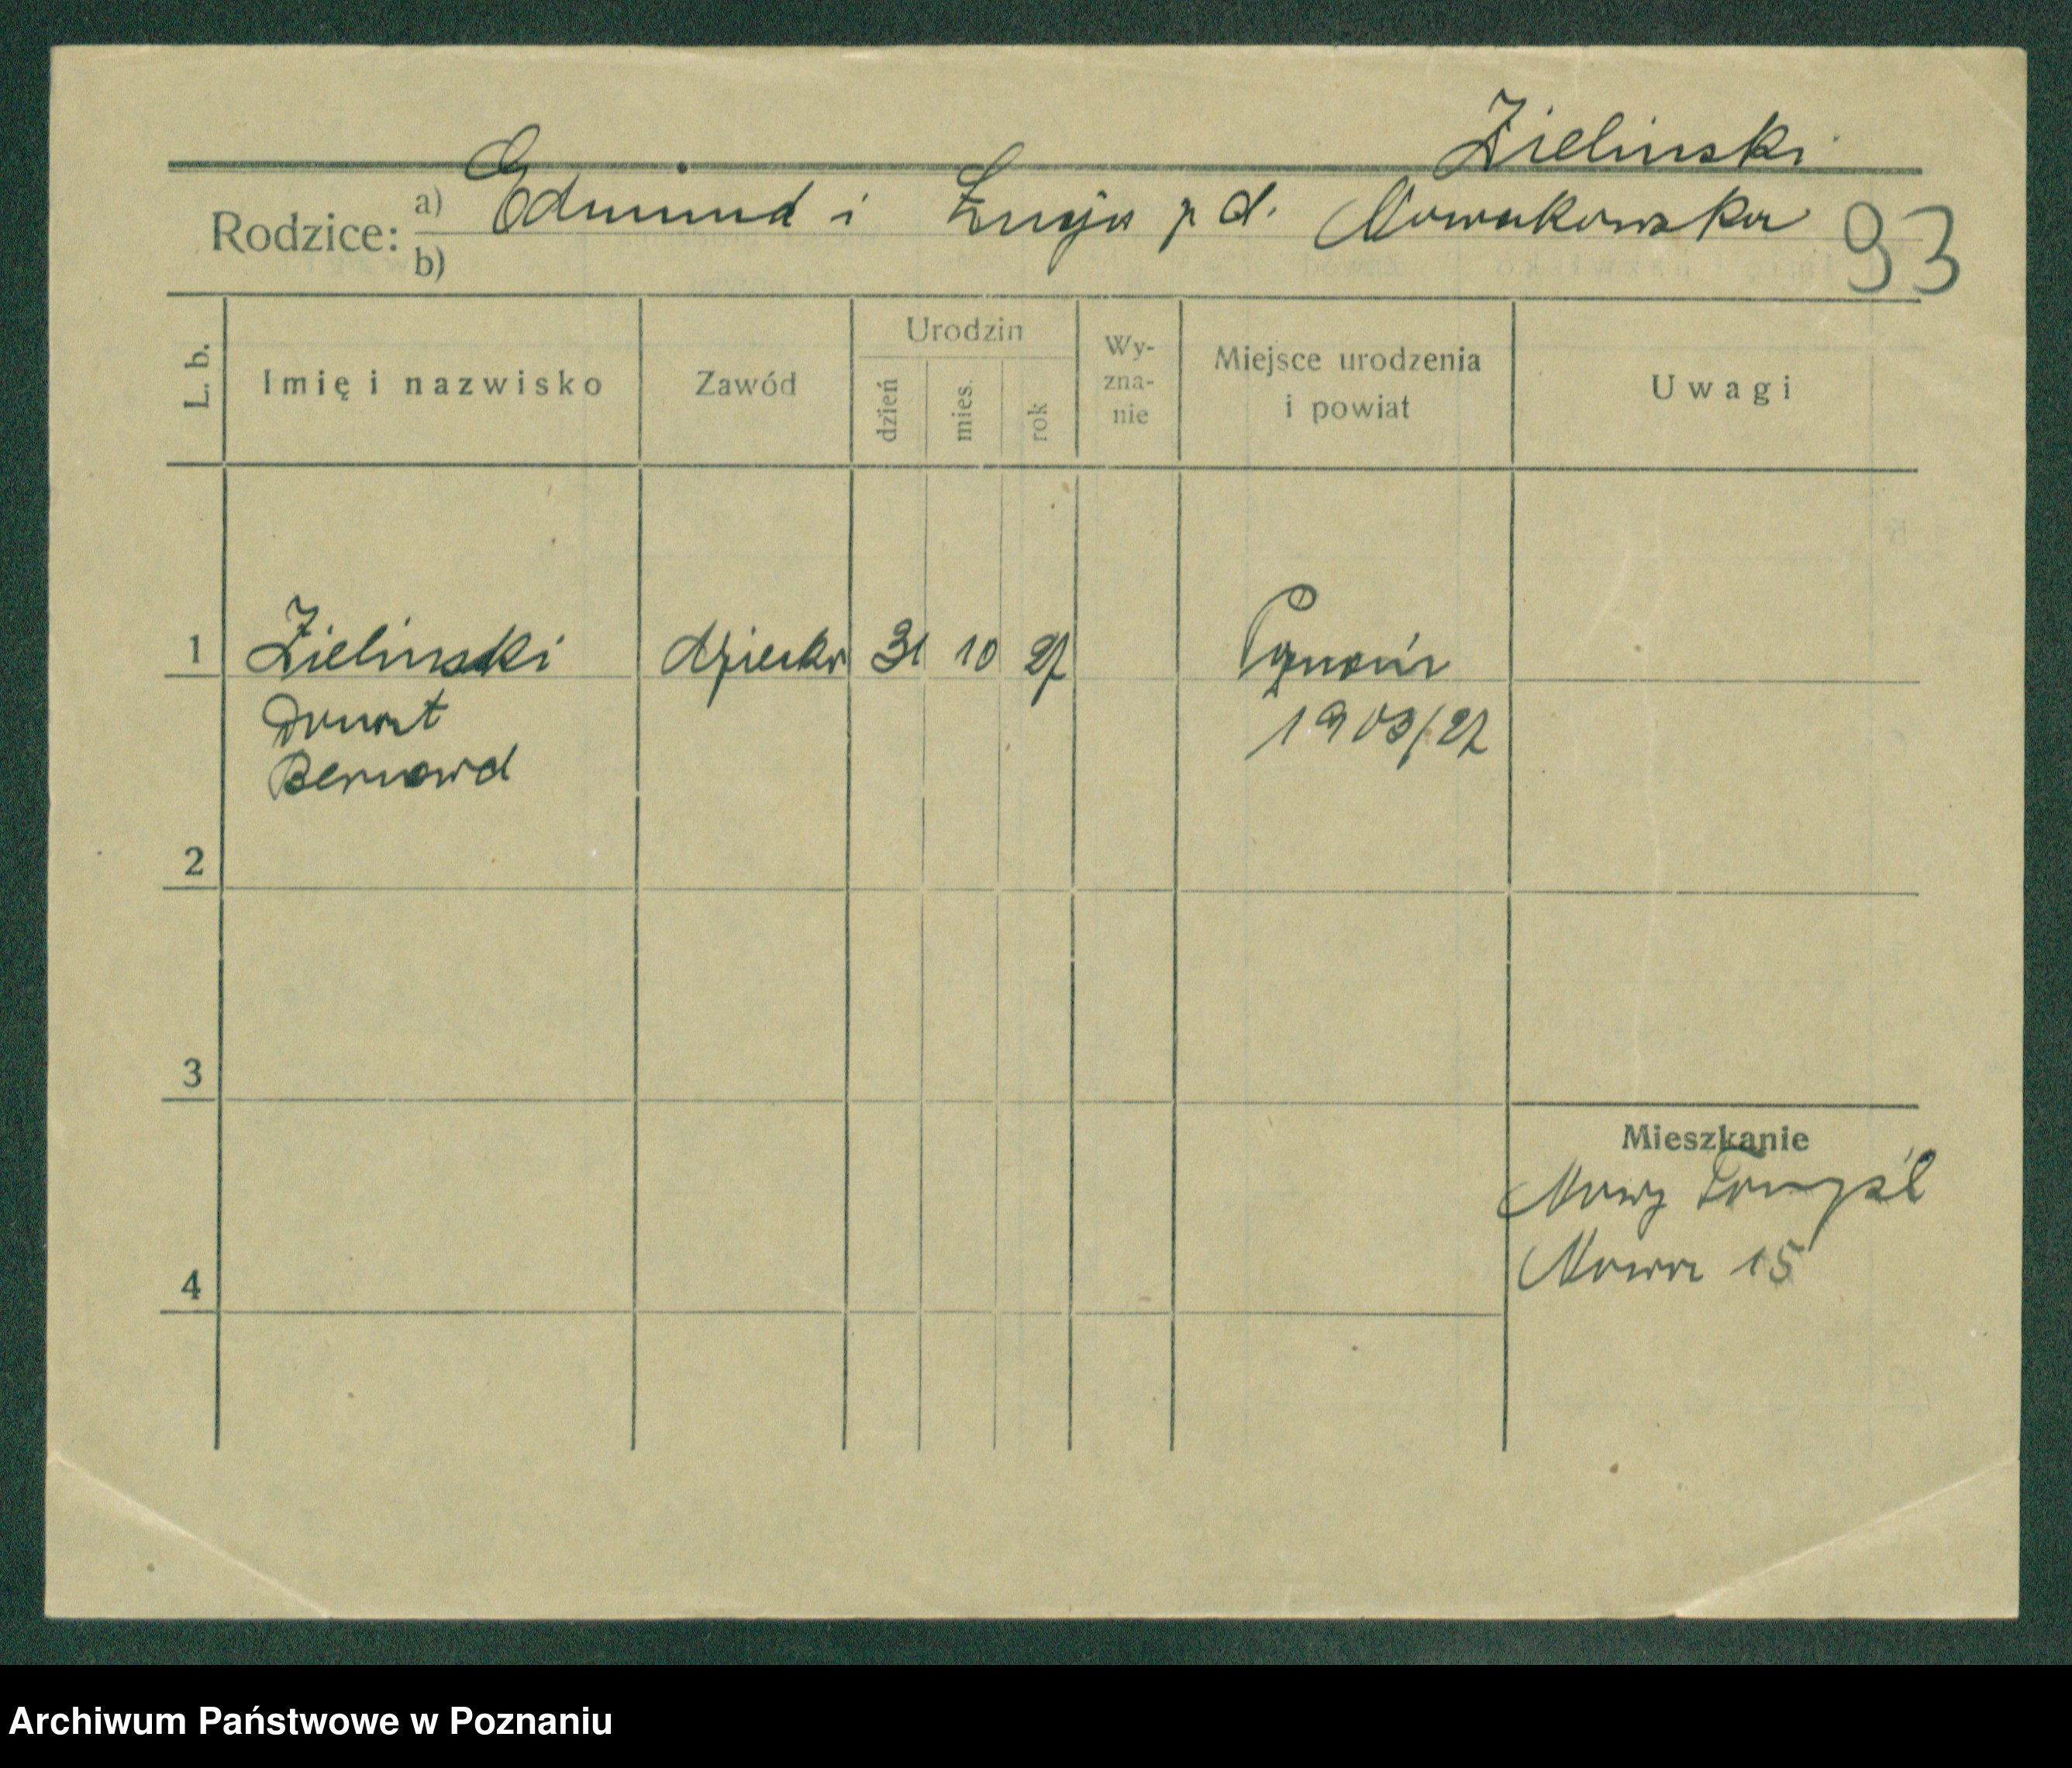 Zielinski
Rodzice: a) Edmund i Łucja p d. Nowakowska
b)
93
L. b. Imię i nazwisko Zawód Urodzin dzień mies. rok Wy-zna-nie Miejsce urodzenia i powiat Uwagi
1 Zielinski dziecko 31 10 27 Poznań
Donat 1903/27
Bernard
2
3
Mieszkanie
Nowy Tomyśl
4 Nowa 15
Archiwum Państwowe w Poznaniu